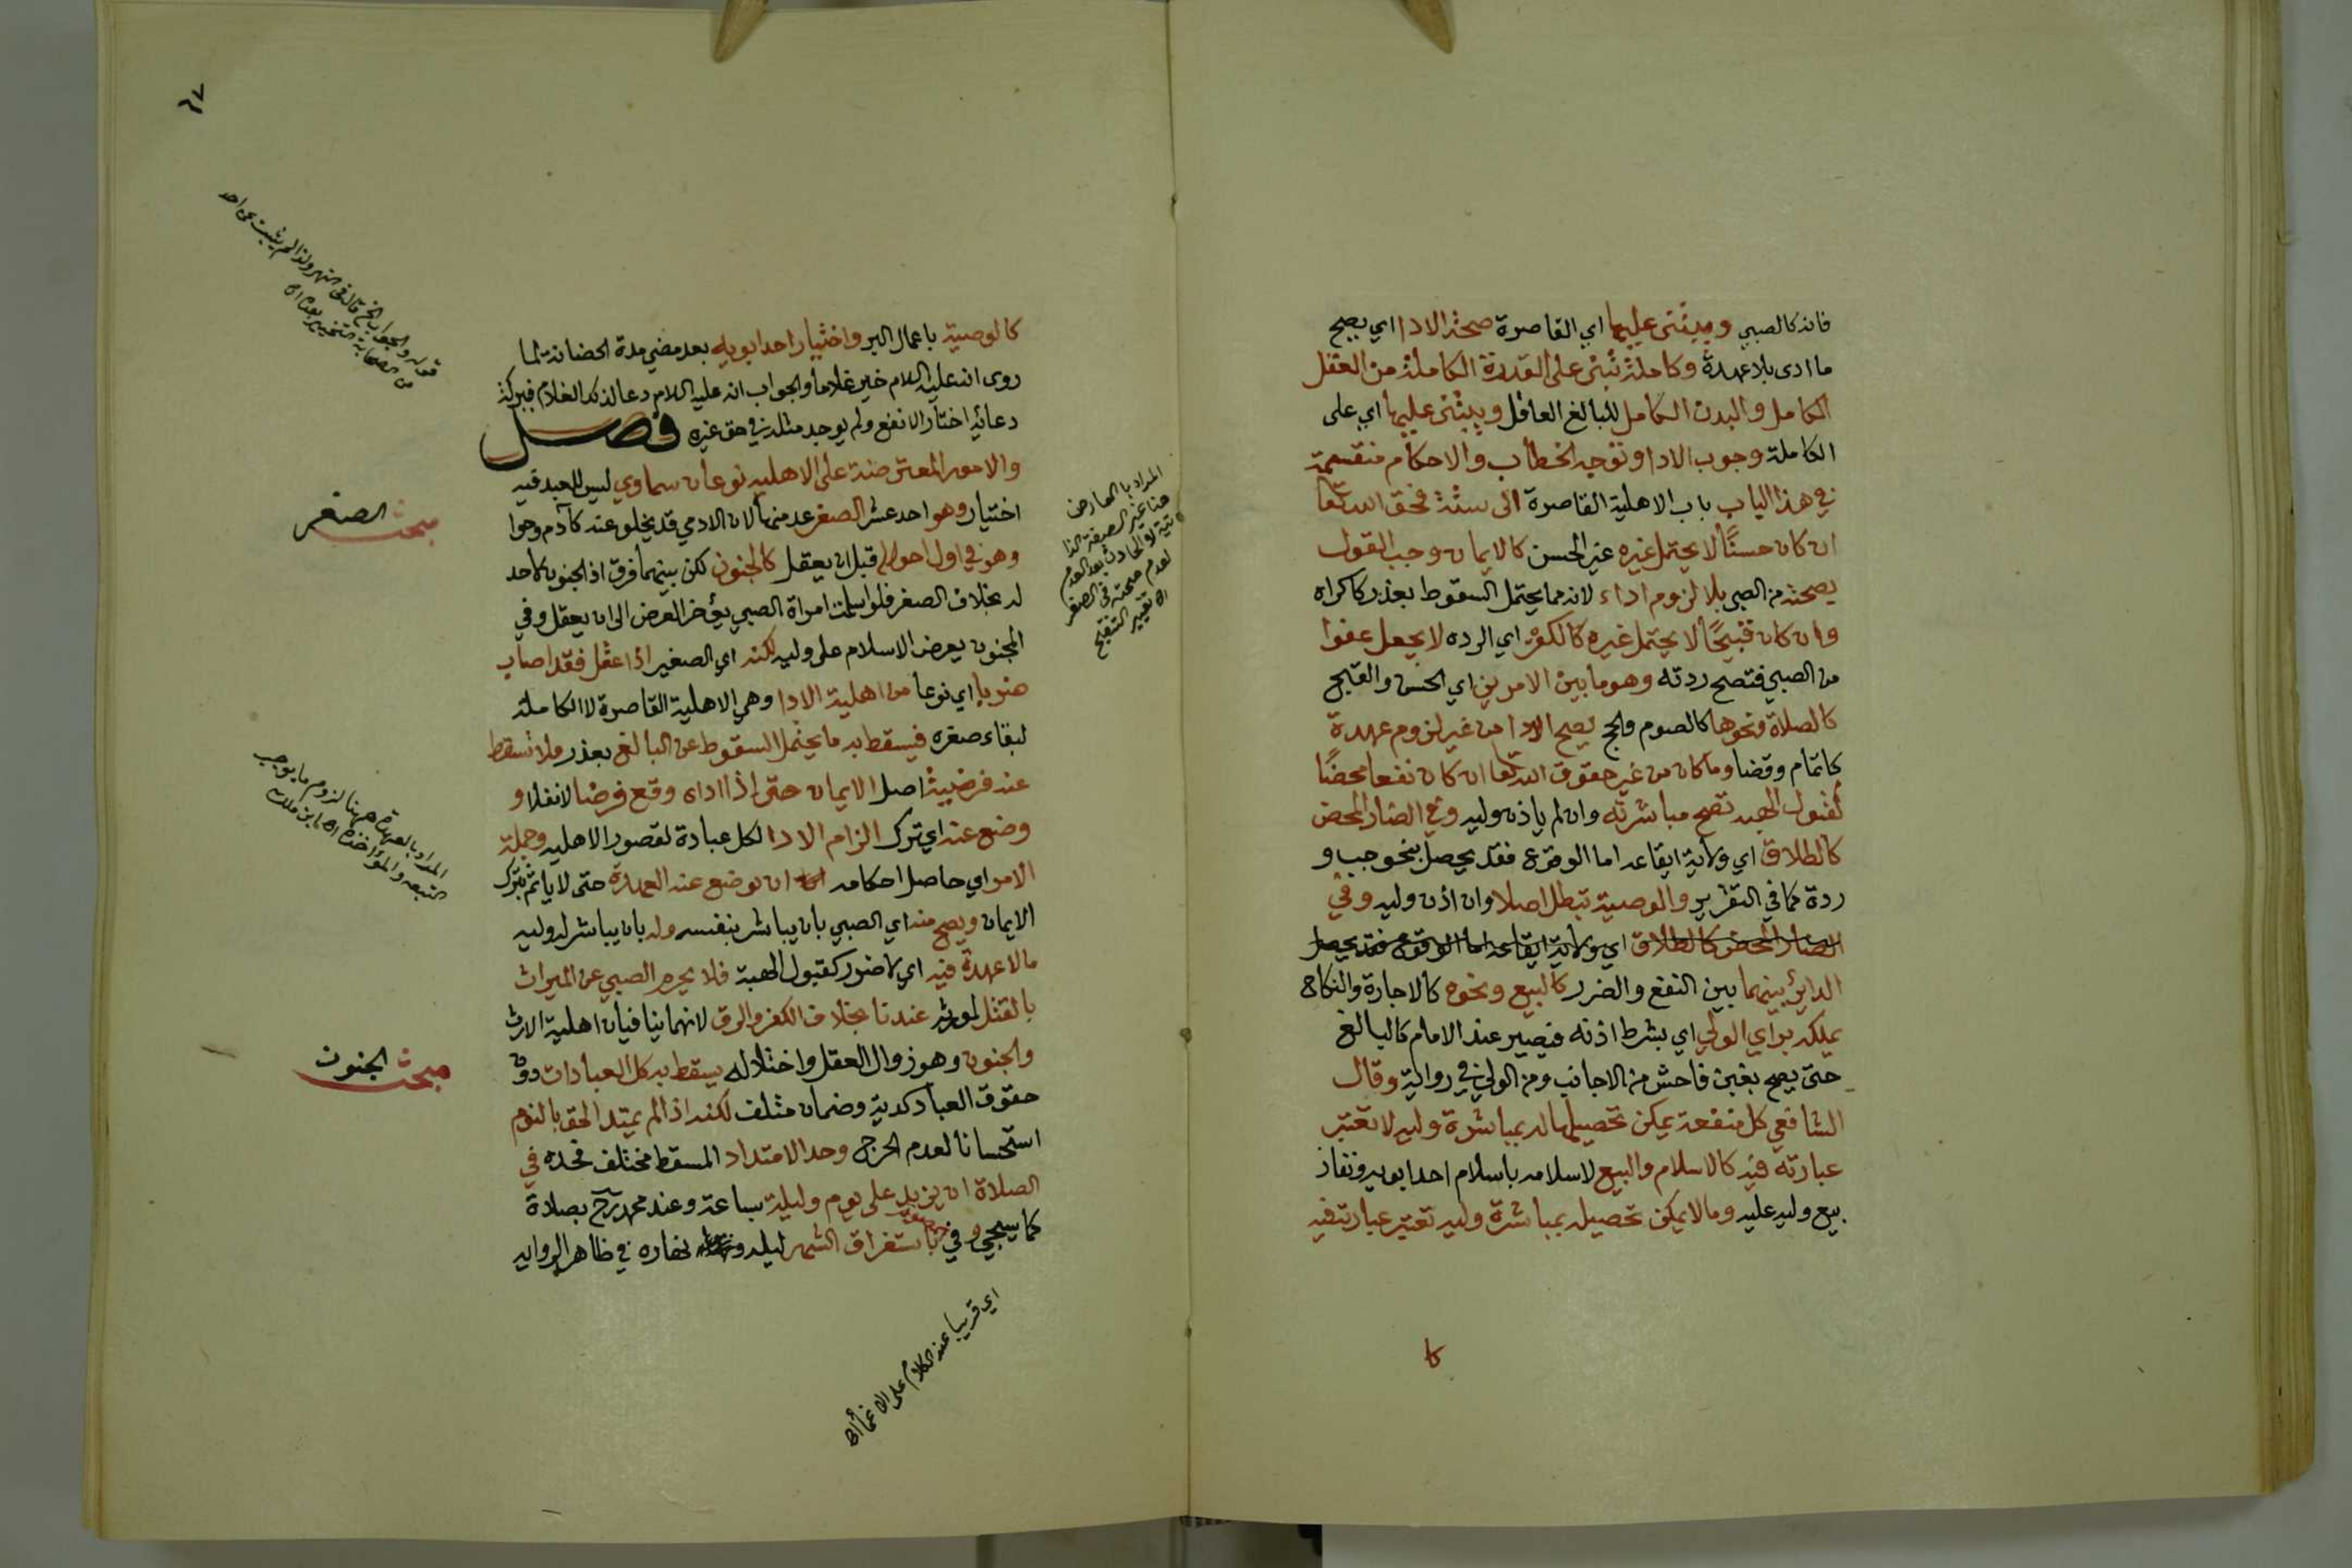 فانه كالصبي ويبتنى عليها اي القاصرة صحة الادا اي يصح
ما ادى بلا عهدة وكاملة تبتنى على القدرة الكاملة من العقل
الكامل والبدن الكامل للبالغ العاقل ويبتنى عليها اي على
الكاملة وجوب الادا وتوجه الخطاب والاحكام منقسمة
في هذا الباب باب الاهلية القاصرة الى ستة فحق الله تعا
ان كان حسنًا لا يحتمل غيره غير الحسن كالايمان وجب القول
بصحته من الصبي بلا لزوم اداء لانه مما يحتمل السقوط بعذر كاكراه
وان كان قبيحًا لا يحتمل غيره كالكفر اي الرده لا يجعل عفوا
من الصبي فتصح ردته وهو ما بين الامرين اي الحسن والقبيح
كالصلاة ونحوها كالصوم والحج يصح الادا من غير لزوم عهدة
كاتمام وقضا وما كان من غير حقوق الله تعا ان كان نفعا محضًا
كقبول الهبه تصح مباشرته وان لم ياذن وليه وفي الضار المحض
كالطلاق اي ولاية ايقاعه اما الوقوع فقد يحصل بنحو جب و
ردة كما في التقرير والوصية تبطل اصلا وان اذن وليه وفي
الضار المحض كالطلاق اي ولاية ايقاعه اما الوقوع فقد يحصل
الدائر بينهما بين النفع والضرر كالبيع ونحوه كالاجارة والنكاح
يملكه براي الولي اي بشرط اذنه فيصير عند الامام كالبالغ
حتى يصح بغبن فاحش من الاجانب ومن الولي في رواية وقال
الشافعي كل منفعة يمكن تحصيلها له بمباشرة وليه لا تعتبر
عبارته فيه كالاسلام والبيع لاسلامه باسلام احد ابويه ونفاذ
بيع وليه عليه وما لا يمكن تحصيله بمباشرة وليه تعتبر عبارته فيه
٦٧
كالوصية باعمال البر واختيار احد ابويه بعد مضي مدة الحضانة لما
روى انه عليه السلام خير غلاما والجواب انه عليه السلام دعا لذلك الغلام فببركة
دعائه اختار الانفع ولم يوجد مثله في حق غيره فصل
والامور المعترضة على الاهليه نوعان سماوي ليس للعبد فيه
اختيار وهو احد عشر الصغر عد منها لان الادمي قد يخلو عنه كآدم وحوا
وهو في اول احواله قبل ان يعقل كالجنون لكن بينهما فرق اذ الجنون لا حد
له بخلاف الصغر فلو اسلمت امراة الصبي يؤخر العرض الى ان يعقل وفي
المجنون يعرض الاسلام على وليه لكنه اي الصغير اذا عقل فقد اصاب
ضربا اي نوعا من اهلية الادا وهي الاهلية القاصرة لا الكاملة
لبقاء صغره فيسقط به ما يحتمل السقوط عن البالغ بعذر ولا تسقط
عنه فرضية اصل الايمان حتى اذا اداه وقع فرضا لا نفلا و
وضع عنه اي ترك الزام الادا لكل عبادة لقصور الاهليه وجملة
الامر اي حاصل احكامه ان توضع عنه العهدة حتى لا ياثم بترك
الايمان ويصح منه اي الصبي بان يباشر بنفسه وله بان يباشر له وليه
ما لا عهدة فيه اي لا ضرر كقبول الهبة فلا يحرم الصبي عن الميراث
بالقتل لمورثه عندنا بخلاف الكفر والرق لانهما ينافيان اهلية الارث
والجنون وهو زوال العقل واختلاله يسقط به كل العبادات دون
حقوق العباد كدية وضمان متلف لكنه اذا لم يمتد الحق بالنوم
استحسانا لعدم الحرج وحد الامتداد المسقط مختلف فحده في
الصلاة ان يزيد على يوم وليلة بساعة وعند محمد رح بصلاة
كما سيجي وفي الصوم باستغراق الشهر ليله ونهاره في ظاهر الروايه
مبحث الصغر
مبحث الجنون
المراد بالعارض
هنا غير الصفة الذا
تية لا الحادث بعد العدم
لعدم صحته في الصغر
اه تغيير التنقيح
المراد بالعهدة ههنا لزوم ما يوجب
التبعه والمؤاخذة اه ابن ملك
اي قريبا عند الكلام على الاغماء اه